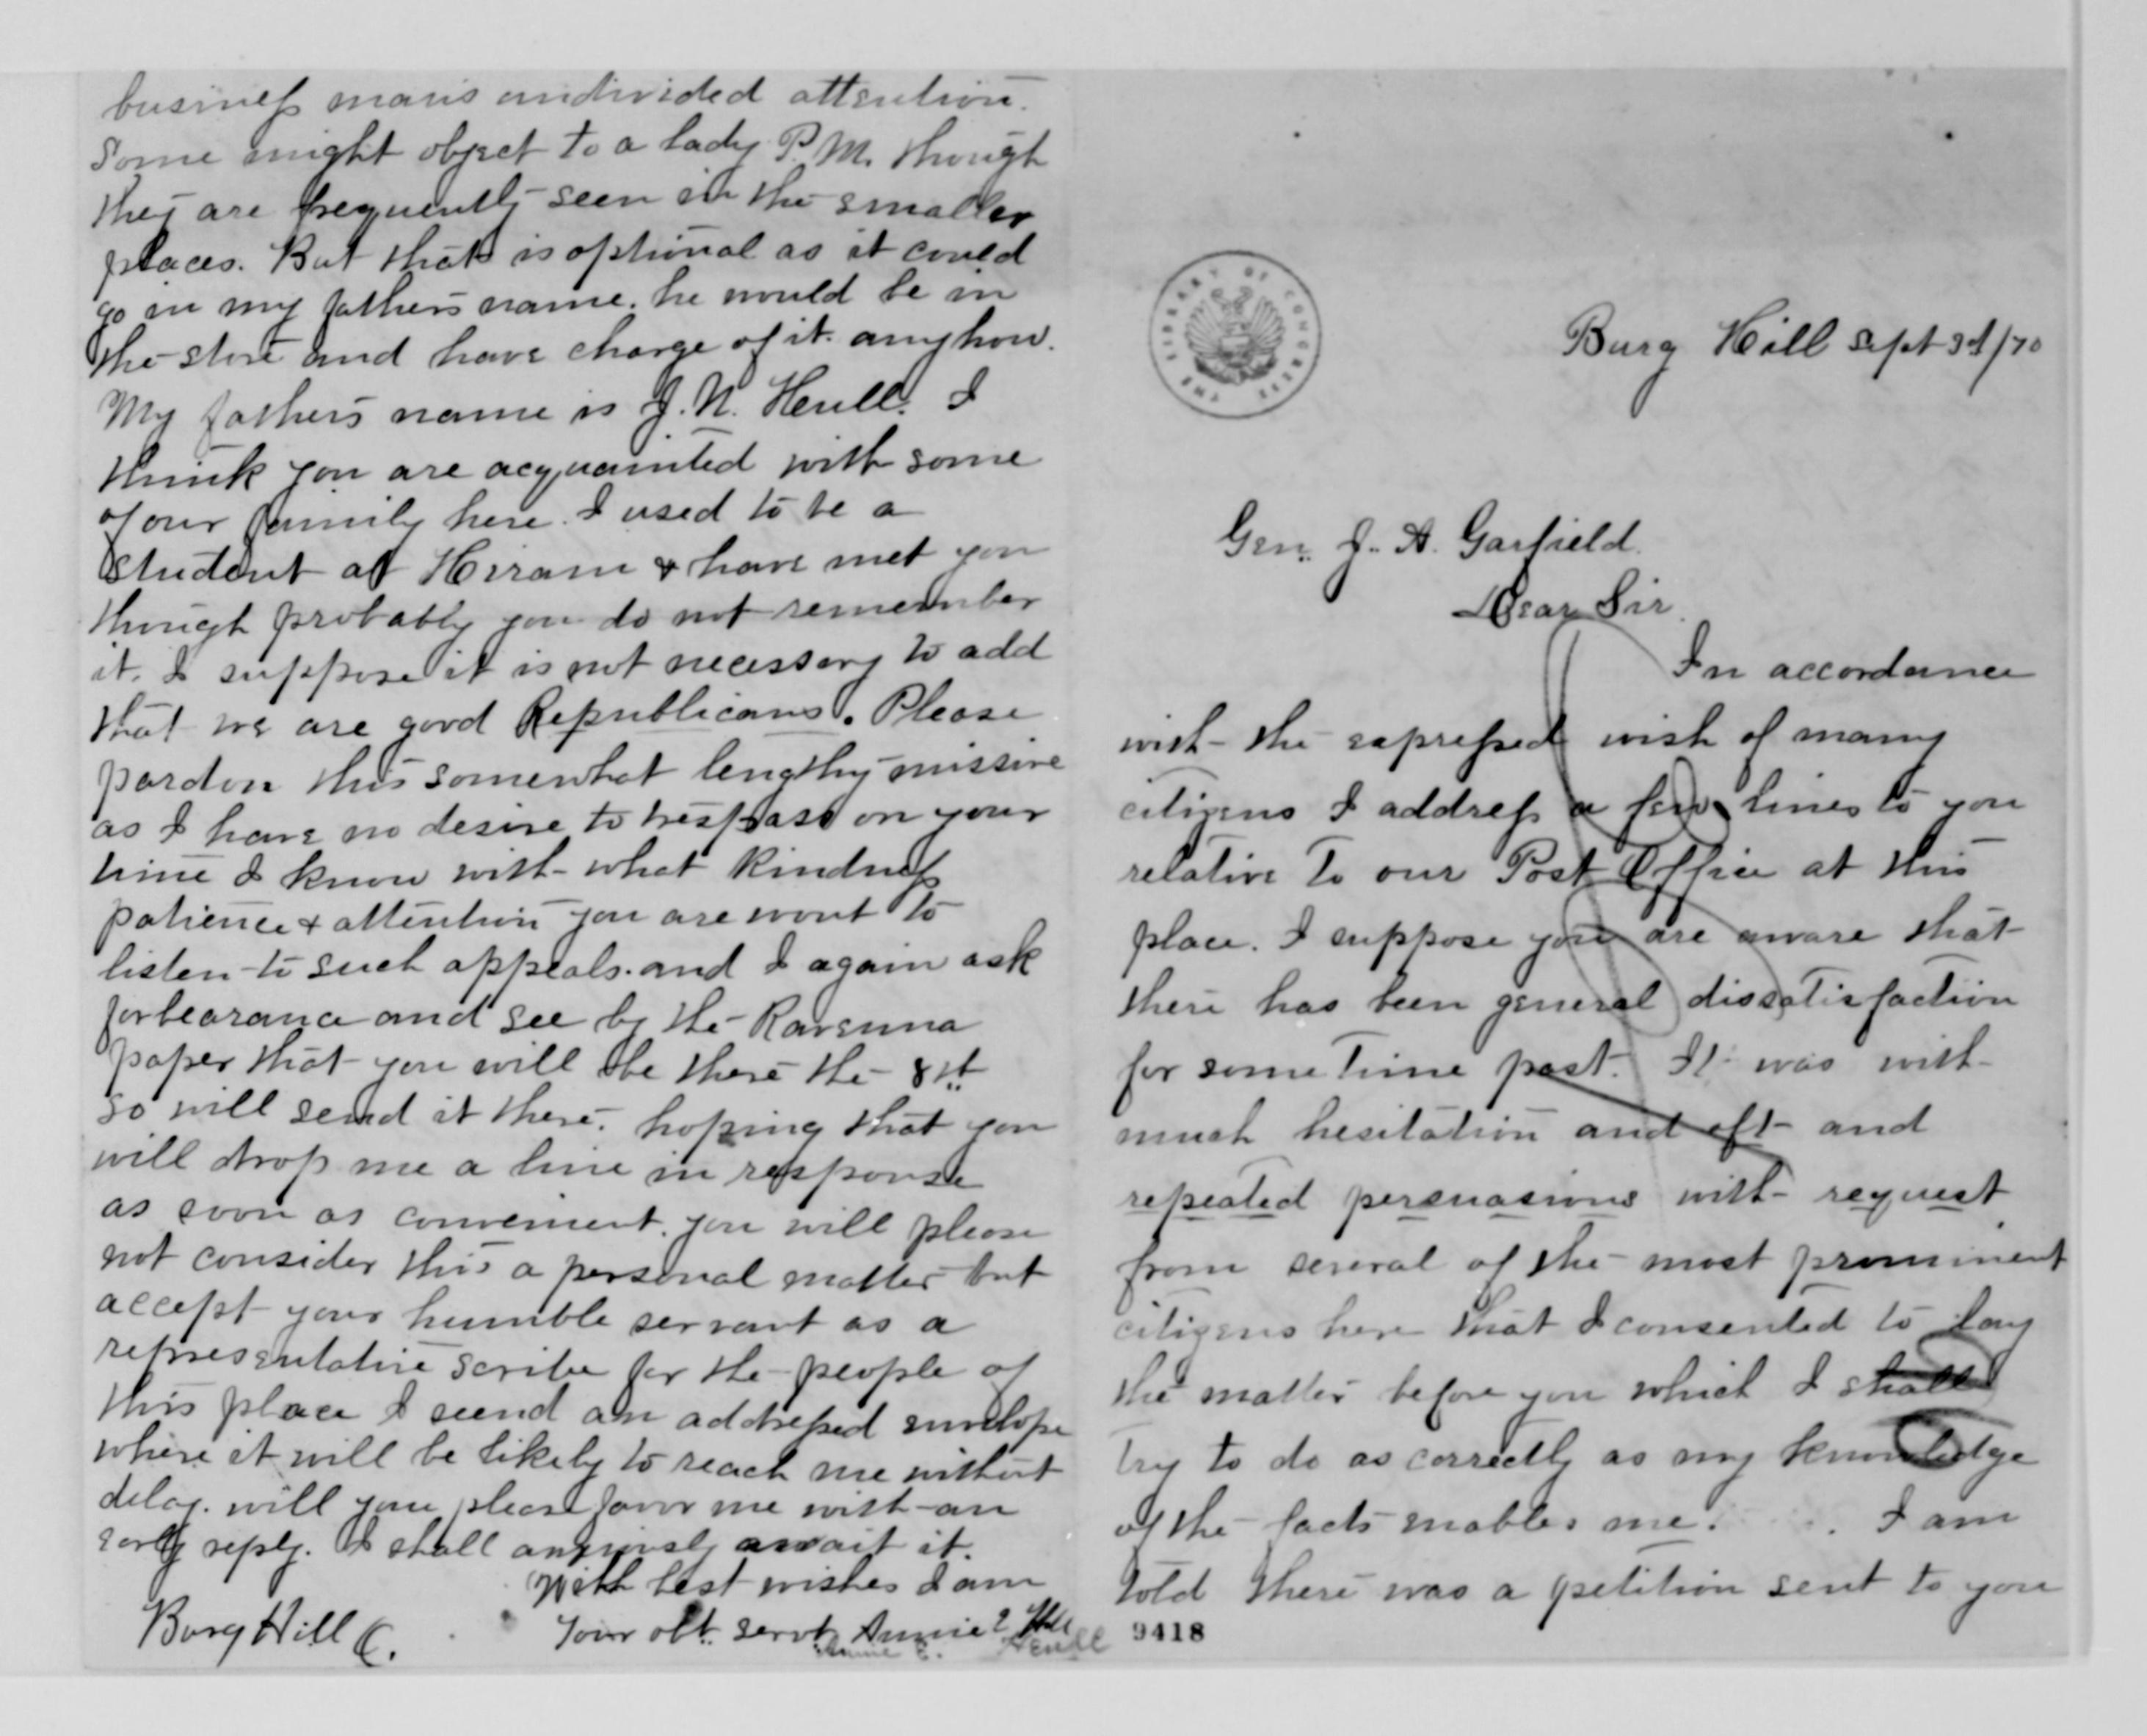 business mans undivided attention.
Some might object to a lady P.M. though
they are frequently seen in the smaller
places. But that is optional as it could
go in my fathers name. he would be in
the store and have charge of it anyhow.
My fathers name is J. N. Heull. I
think you are acquainted with some
of our family here. I used to be a
student at Hiram & have met you
though probably you do not remember
it. I suppose it is not necessary to add
that we are good Republicans. Please
pardon this somewhat lengthy missive
as I have no desire to trespass on your
time I know with what kindness
patience & attention you are wont to
listen to such appeals. and I again ask
forbearance and see by the Ravenna
paper that you will be there the 8th
so will send it there. hoping that you
will drop me a line in response
as soon as convenient. you will please
not consider this a personal matter but
accept your humble servant as a
representative scribe for the people of
this place I send an addressed envelope
where it will be likely to reach me without
delay. will you please favor me with an
early reply. I shall anxiously await it.
With best wishes I am
Your obt. servt Annie E
Annie E. Heull
Burg Hill O.
THE LIBRARY OF CONGRESS
Burg Hill Sept 3d/70
Gen. J. A. Garfield.
Dear Sir.
In accordance
with the expressed wish of many
citizens I address a few lines to you
relative to our Post Office at this
place. I suppose you are aware that
there has been general dissatisfaction
for some time past. It was with
much hesitation and oft and
repeated persuasions with request
from several of the most prominent
citizens here that I consented to lay
the matter before you which I shall
try to do as correctly as my knowledge
of the facts enables me. I am
told there was a petition sent to you
9418